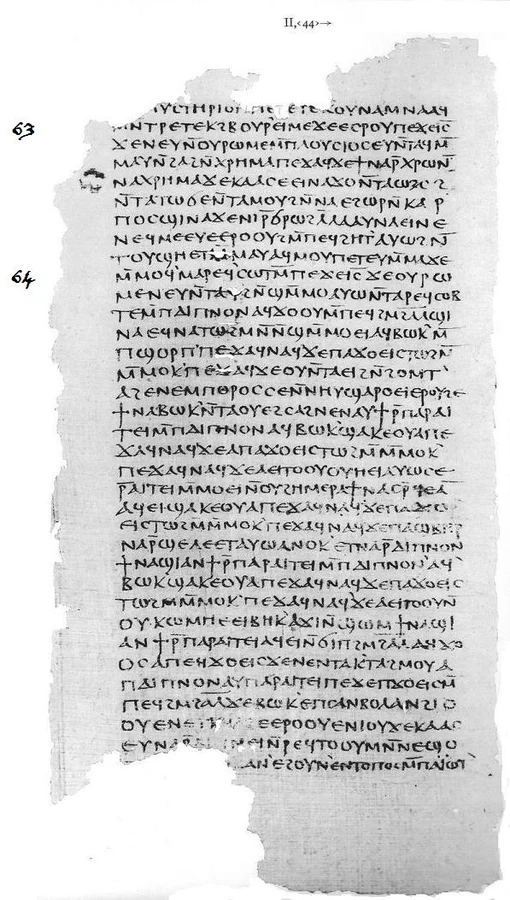 II,‹44›→
ⲙⲩⲥⲧⲏⲣⲓⲟⲛⲡⲉⲧⲉⲧⲉⲕⲟⲩⲛⲁⲙⲛⲁⲁϥ
63
ⲙⲛ̄ⲧⲣⲉⲧⲉⲕϩⲃⲟⲩⲣⲉⲓⲙⲉϫⲉⲉⲥⲣⲟⲩⲡⲉϫⲉⲓ̅ⲥ̅
ϫⲉⲛⲉⲩⲛ̄ⲟⲩⲣⲱⲙⲉⲙ̄ⲡⲗⲟⲩⲥⲓⲟⲥⲉⲩⲛ̄ⲧⲁϥⲙ̄
ⲙⲁⲩⲛ̄ϩⲁϩⲛ̄ⲭⲣⲏⲙⲁⲡⲉϫⲁϥϫⲉϯⲛⲁⲣ̄ⲭⲣⲱⲛ̄
ⲛⲁⲭⲣⲏⲙⲁϫⲉⲕⲁⲁⲥⲉⲉⲓⲛⲁϫⲟⲛ̄ⲧⲁⲱⲥϩ
ⲛ̄ⲧⲁⲧⲱϭⲉⲛ̄ⲧⲁⲙⲟⲩϩⲛ̄ⲛⲁⲉϩⲱⲣⲛ̄ⲕⲁⲣ
ⲡⲟⲥϣⲓⲛⲁϫⲉⲛⲓⲣ̄ϭⲣⲱϩⲗⲁⲁⲩⲛⲁⲉⲓⲛⲉ
ⲛⲉϥⲙⲉⲉⲩⲉⲉⲣⲟⲟⲩϩⲙ̄ⲡⲉϥϩⲏⲧⲁⲩⲱϩⲛ̄
ⲧⲟⲩϣⲏⲉⲧⲙ̄ⲙⲁⲩⲁϥⲙⲟⲩⲡⲉⲧⲉⲩⲙ̄ⲙⲁϫⲉ
64
ⲙ̄ⲙⲟϥⲙⲁⲣⲉϥⲥⲱⲧⲙ̄ⲡⲉϫⲉⲓ̅ⲥ̅ϫⲉⲟⲩⲣⲱ
ⲙⲉⲛⲉⲩⲛ̄ⲧⲁϥϩⲛ̄ϣⲙ̄ⲙⲟⲁⲩⲱⲛ̄ⲧⲁⲣⲉϥⲥⲟⲃ
ⲧⲉⲙ̄ⲡⲇⲓⲡⲛⲟⲛⲁϥϫⲟⲟⲩⲙ̄ⲡⲉϥϩⲙ̄ϩⲁⲗϣⲓ
ⲛⲁⲉϥⲛⲁⲧⲱϩⲙⲛ̄ⲛ̄ϣⲙ̄ⲙⲟⲉⲓⲁϥⲃⲱⲕⲙ̄
ⲡϣⲟⲣⲡⲡⲉϫⲁϥⲛⲁϥϫⲉⲡⲁϫⲟⲉⲓⲥⲧⲱϩⲙ̄
ⲙ̄ⲙⲟⲕⲡⲉϫⲁϥϫⲉⲟⲩⲛ̄ⲧⲁⲉⲓϩⲛ̄ϩⲟⲙⲧ
ⲁϩⲉⲛⲉⲙⲡⲟⲣⲟⲥⲥⲉⲛ̄ⲛⲏⲩϣⲁⲣⲟⲉⲓⲉⲣⲟⲩϩⲉ
ϯⲛⲁⲃⲱⲕⲛ̄ⲧⲁⲟⲩⲉϩⲥⲁϩⲛⲉⲛⲁⲩϯⲣ̄ⲡⲁⲣⲁⲓ
ⲧⲉⲓⲙ̄ⲡⲇⲓⲡⲛⲟⲛⲁϥⲃⲱⲕϣⲁⲕⲉⲟⲩⲁⲡⲉ
ϫⲁϥⲛⲁϥϫⲉⲁⲡⲁϫⲟⲉⲓⲥⲧⲱϩⲙ̄ⲙ̄ⲙⲟⲕ
ⲡⲉϫⲁϥⲛⲁϥϫⲉⲁⲉⲓⲧⲟⲟⲩⲟⲩⲏⲉⲓⲁⲩⲱⲥⲉ
ⲣ̄ⲁⲓⲧⲉⲓⲙ̄ⲙⲟⲉⲓⲛ̄ⲟⲩϩⲏⲙⲉⲣⲁϯⲛⲁⲥⲣ̄ϥⲉⲁ
ⲁϥⲉⲓϣⲁⲕⲉⲟⲩⲁⲡⲉϫⲁϥⲛⲁϥϫⲉⲡⲁϫⲟ
ⲉⲓⲥⲧⲱϩⲙ̄ⲙ̄ⲙⲟⲕⲡⲉϫⲁϥⲛⲁϥϫⲉⲡⲁϣⲃⲏⲣ
ⲛⲁⲣ̄ϣⲉⲗⲉⲉⲧⲁⲩⲱⲁⲛⲟⲕⲉⲧⲛⲁⲣ̄ⲇⲓⲡⲛⲟⲛ
ϯⲛⲁϣⲓⲁⲛϯⲣ̄ⲡⲁⲣⲁⲓⲧⲉⲓⲙ̄ⲡⲇⲓⲡⲛⲟⲛⲁϥ
ⲃⲱⲕϣⲁⲕⲉⲟⲩⲁⲡⲉϫⲁϥⲛⲁϥϫⲉⲡⲁϫⲟⲉⲓⲥ
ⲧⲱϩⲙⲙ̄ⲙⲟⲕⲡⲉϫⲁϥⲛⲁϥϫⲉⲁⲉⲓⲧⲟⲟⲩⲛ̄
ⲟⲩⲕⲱⲙⲏⲉⲉⲓⲃⲏⲕⲁϫⲓⲛ̄ϣⲱⲙϯⲛⲁϣⲓ
ⲁⲛϯⲣ̄ⲡⲁⲣⲁⲓⲧⲉⲓⲁϥⲉⲓⲛ̄ϭⲓⲡϩⲙ̄ϩⲁⲗⲁϥϫⲟ
ⲟⲥⲁⲡⲉϥϫⲟⲉⲓⲥϫⲉⲛⲉⲛⲧⲁⲕⲧⲁϩⲙⲟⲩⲁ
ⲡⲇⲓⲡⲛⲟⲛⲁⲩⲡⲁⲣⲁⲓⲧⲉⲓⲡⲉϫⲉⲡϫⲟⲉⲓⲥⲙ̄
ⲡⲉϥϩⲙ̄ϩⲁⲗϫⲉⲃⲱⲕⲉⲡⲥⲁⲛⲃⲟⲗⲁⲛϩⲓⲟ
ⲟⲩⲉⲛⲉ ϩⲉⲉⲣⲟⲟⲩⲉⲛⲓⲟⲩϫⲉⲕⲁⲁⲥ
ⲉⲩⲛⲁⲣ ⲛⲉⲓⲛ̄ⲣⲉϥⲧⲟⲟⲩⲙⲛ̄ⲛⲉϣⲟ
ⲁⲛⲉϩⲟⲩⲛⲉⲛⲧⲟⲡⲟⲥⲙ̄ⲡⲁⲓⲱⲧ